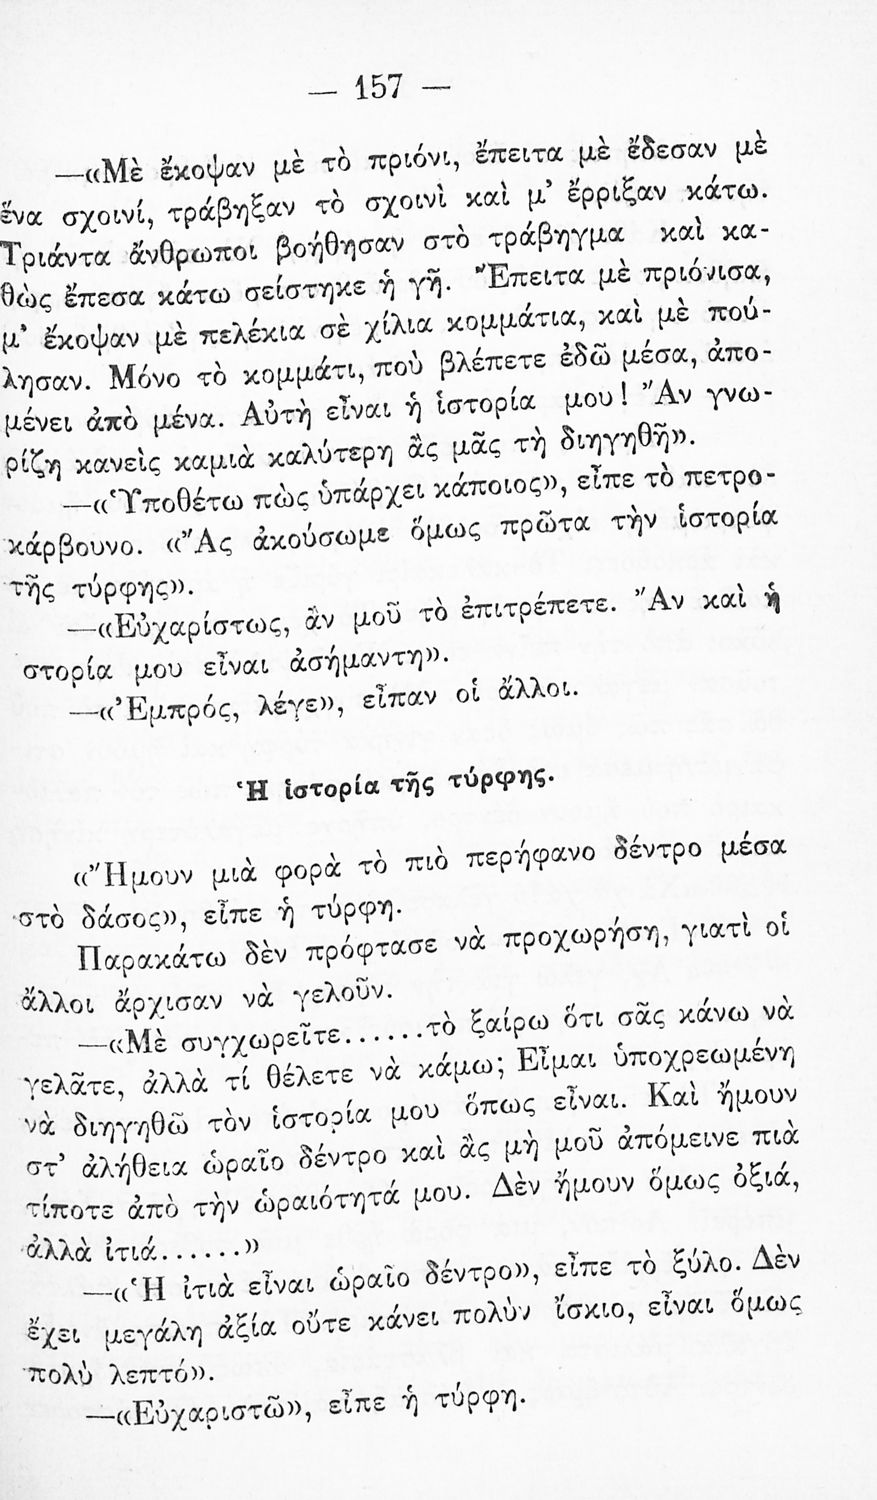 — 157 —
—«Μὲ ἔκοψαν μὲ τὸ πριόνι, ἔπειτα μὲ ἔδεσαν μὲ
ἕνα σχοινί, τράβηξαν τὸ σχοινὶ καὶ μ' ἔρριξαν κάτω.
Τριάντα ἄνθρωποι βοήθησαν στὸ τράβηγμα καὶ κα-
θὼς ἔπεσα κάτω σείστηκε ἡ γῆ. Ἔπειτα μὲ πριόνισα,
μ' ἔκοψαν μὲ πελέκια σὲ χίλια κομμάτια, καὶ μὲ πού-
λησαν. Μόνο τὸ κομμάτι, ποὺ βλέπετε ἐδῶ μέσα, ἀπο-
μένει ἀπὸ μένα. Αὐτὴ εἶναι ἡ ἱστορία μου! Ἂν γνω-
ρίζη κανεὶς καμιὰ καλύτερη ἂς μᾶς τὴ διηγηθῆ».
—«Ὑποθέτω πὼς ὑπάρχει κάποιος», εἶπε τὸ πετρο-
κάρβουνο. «Ἂς ἀκούσωμε ὅμως πρῶτα τὴν ἱστορία
τῆς τύρφης».
—«Εὐχαρίστως, ἂν μοῦ τὸ ἐπιτρέπετε. Ἂν καὶ ἡ
στορία μου εἶναι ἀσήμαντη».
—«Ἐμπρός, λέγε», εἶπαν οἱ ἄλλοι.
Ἡ ἱστορία τῆς τύρφης.
«Ἤμουν μιὰ φορὰ τὸ πιὸ περήφανο δέντρο μέσα
στὸ δάσος», εἶπε ἡ τύρφη.
Παρακάτω δὲν πρόφτασε νὰ προχωρήση, γιατὶ οἱ
ἄλλοι ἄρχισαν νὰ γελοῦν.
—«Μὲ συγχωρεῖτε......τὸ ξαίρω ὅτι σᾶς κάνω νὰ
γελᾶτε, ἀλλὰ τί θέλετε νὰ κάμω; Εἶμαι ὑποχρεωμένη
νὰ διηγηθῶ τὸν ἱστορία μου ὅπως εἶναι. Καὶ ἤμουν
στ' ἀλήθεια ὡραῖο δέντρο καὶ ἂς μὴ μοῦ ἀπόμεινε πιὰ
τίποτε ἀπὸ τὴν ὡραιότητά μου. Δὲν ἤμουν ὅμως ὀξιά,
ἀλλὰ ἰτιά......»
—«Ἡ ἰτιὰ εἶναι ὡραῖο δέντρο», εἶπε τὸ ξύλο. Δὲν
ἔχει μεγάλη ἀξία οὔτε κάνει πολὺν ἴσκιο, εἶναι ὅμως
πολὺ λεπτό».
—«Εὐχαριστῶ», εἶπε ἡ τύρφη.